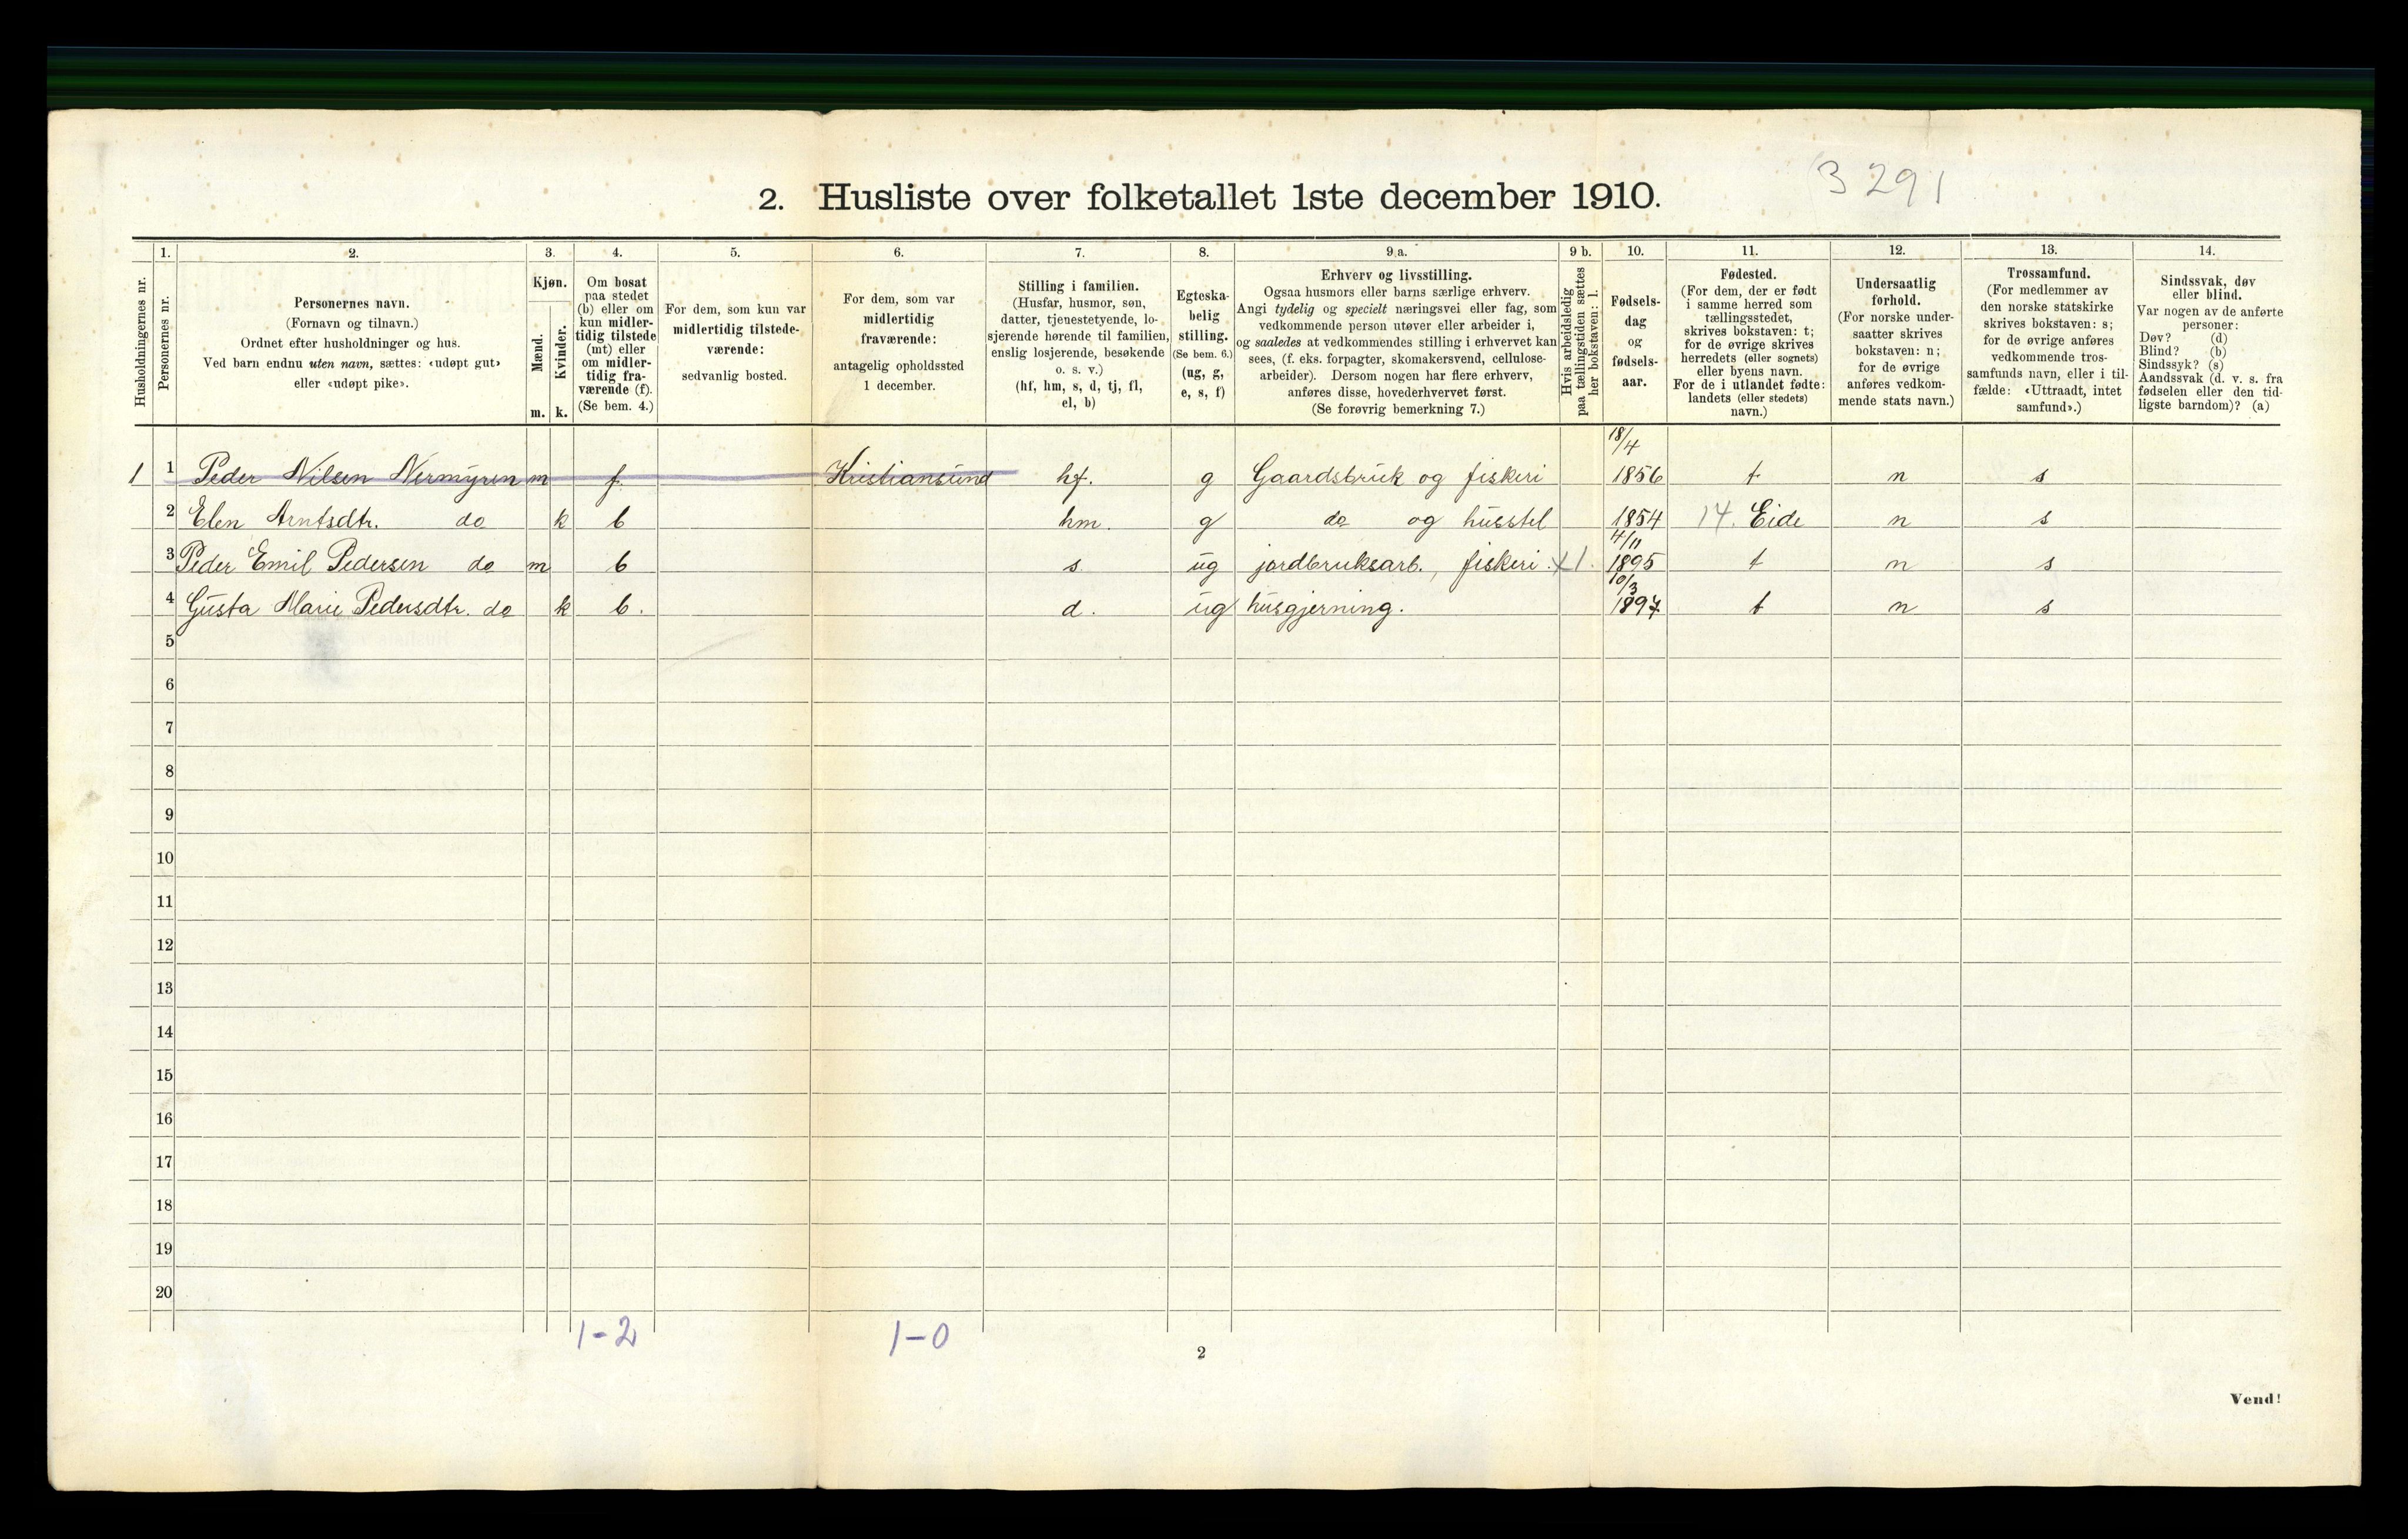 3291
2. Husliste over folketallet 1ste december 1910.
Husholdningernes nr.
1.
Personernes nr.
2.
Personernes navn.
(Fornavn og tilnavn.)
Ordnet efter husholdninger og hus.
Ved barn endnu uten navn, sættes: «udøpt gut»
eller «udøpt pike».
3.
Kjøn.
Mænd.
Kvinder.
m. k.
4.
Om bosat
paa stedet
(b) eller om
kun midler-
tidig tilstede
(mt) eller
om midler-
tidig fra-
værende (f).
(Se bem. 4.)
5.
For dem, som kun var
midlertidig tilstede-
værende:
sedvanlig bosted.
6.
For dem, som var
midlertidig
fraværende:
antagelig opholdssted
1 december.
7.
Stilling i familien.
(Husfar, husmor, søn,
datter, tjenestetyende, lo-
sjerende hørende til familien,
enslig losjerende, besøkende
o. s. v.)
(hf, hm, s, d, tj, fl,
el, b)
8.
Egteska-
belig
stilling.
(Se bem. 6.)
(ug, g,
e, s, f)
9 a.
Erhverv og livsstilling.
Ogsaa husmors eller barns særlige erhverv.
Angi tydelig og specielt næringsvei eller fag, som
vedkommende person utøver eller arbeider i,
og saaledes at vedkommendes stilling i erhvervet kan
sees, (f. eks. forpagter, skomakersvend, cellulose-
arbeider). Dersom nogen har flere erhverv,
anføres disse, hovederhvervet først.
(Se forøvrig bemerkning 7.)
9 b.
Hvis arbeidsledig
paa tællingstiden sættes
her bokstaven: l.
10.
Fødsels-
dag
og
fødsels-
aar.
11.
Fødested.
(For dem, der er født
i samme herred som
tællingsstedet,
skrives bokstaven: t;
for de øvrige skrives
herredets (eller sognets)
eller byens navn.
For de i utlandet fødte:
landets (eller stedets)
navn.)
12.
Undersaatlig
forhold.
(For norske under-
saatter skrives
bokstaven: n;
for de øvrige
anføres vedkom-
mende stats navn.)
13.
Trossamfund.
(For medlemmer av
den norske statskirke
skrives bokstaven: s;
for de øvrige anføres
vedkommende tros-
samfunds navn, eller i til-
fælde: «Uttraadt, intet
samfund».)
14.
Sindssvak, døv
eller blind.
Var nogen av de anførte
personer:
Døv? (d)
Blind? (b)
Sindssyk? (s)
Aandssvak (d. v. s. fra
fødselen eller den tid-
ligste barndom)? (a)
18/4
1 1 Peder Nilsen Nermyren m f. Kristiansund hf. g Gaardsbruk og fiskeri 1856 t n s
2 Elen Arntsdtr. do k b hm. g do og husstel 1854 14. Eide n s
4/11
3 Peder Emil Pedersen do m b s. ug jordbruksarb., fiskeri. 1895 t n s
10/3
4 Gusta Marie Pedersdtr. do k b. d. ug husgjerning. 1897 t n s
5
6
7
8
9
10
11
12
13
14
15
16
17
18
19
20
1-2 1-0
2
Vend!